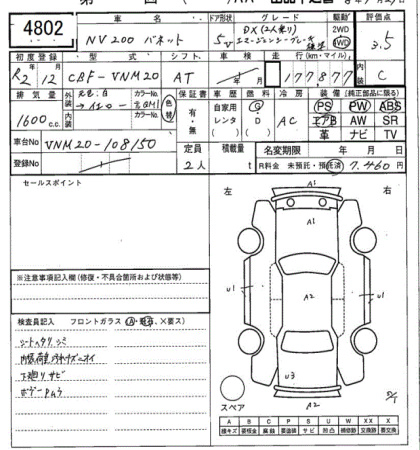 4802
車名 ドア形状 グレード 駆動 評価点
NV200 バネット 5V DX(2人乗り) 2WD 4WD 3.5
エマージェンシーブレーキ
初度登録 型式 シフト 車検 走行(km・マイル) 内装
R2年12月 CBF-VNM20 AT 年 月 177877 C
排気量 外装 元色:白 カラーNo. 保証書 車歴 燃料 冷房 装備(純正部品に限る)
1600c.c. 内装 カラーNo. 色替 有・無 自家用 レンタ G D AC PS PW ABS
エアB AW SR
革 ナビ TV
車台No VNM20-108150 定員 積載量 名変期限 年 月 日
登録No 2人 t R料金 未預託・預託済 7,460円
セールスポイント 左 右
A1
A1
※注意事項記入欄(修復・不具合箇所および改造等)
U1 A2 U1
検査員記入 フロントガラス(A・飛石・X要ス)
シートヘタリ、シミ
U3
下廻りサビ
スペア A2
A B C P S U W X XX
線キズ 要板金 腐蝕 要塗装 サビ 凹凸 補修跡 要交換 交換済